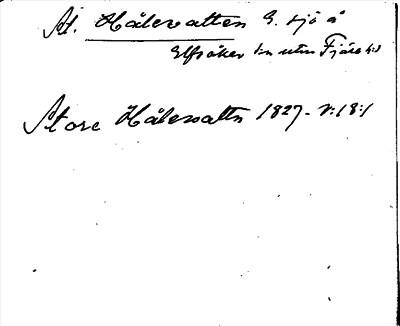 St. Hålevatten G. sjö å
Elfsåker sn utm Fjäre hd
Store Hålevattn 1827- V:18:1